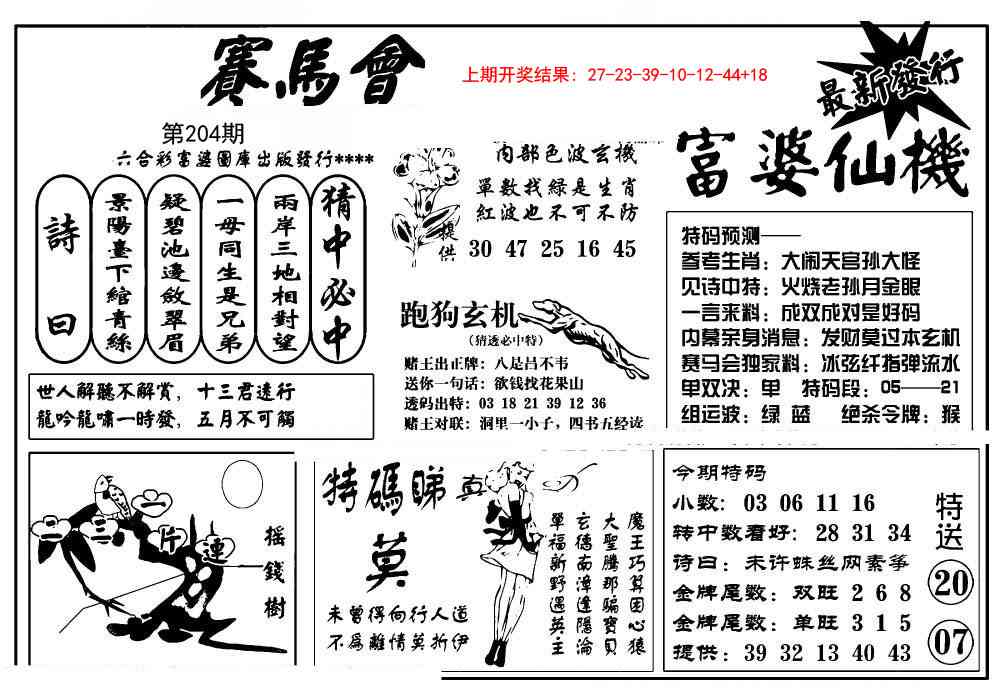 賽馬會
上期开奖结果：27-23-39-10-12-44+18
最新發行
第204期
六合彩富婆圖庫出版發行****
富婆仙機
猜中必中
兩岸三地相對望
一母同生是兄弟
疑碧池邊斂翠眉
景陽臺下綰青絲
詩曰
世人解聽不解賞，十三君逺行
龍吟龍嘯一時發，五月不可觸
内部色波玄機
單數找緑是生肖
紅波也不可不防
提供
30 47 25 16 45
跑狗玄机
(猜透必中特)
赌王出正牌：八是吕不韦
送你一句话：欲钱找花果山
透码出特：03 18 21 39 12 36
赌王对联：洞里一小子，四书五经读
特码预测——
参考生肖：大闹天宫孙大怪
见诗中特：火烧老孙月金眼
一言来料：成双成对是好码
内幕亲身消息：发财莫过本玄机
赛马会独家料：冰弦纤指弹流水
单双决：单 特码段：05——21
组运波：绿 蓝 绝杀令牌：猴
一二三斤連
摇錢樹
特碼睇真
莫
未曾得向行人道
不爲離情莫折伊
魔王巧算困心猿
大聖騰那騙寶貝
玄德南漳逢隱淪
單福新野遇英主
今期特码
小数：03 06 11 16
转中数看好：28 31 34
诗曰：未许蛛丝网素筝
金牌尾数：双旺 2 6 8
金牌尾数：单旺 3 1 5
提供：39 32 13 40 43
特送
20
07